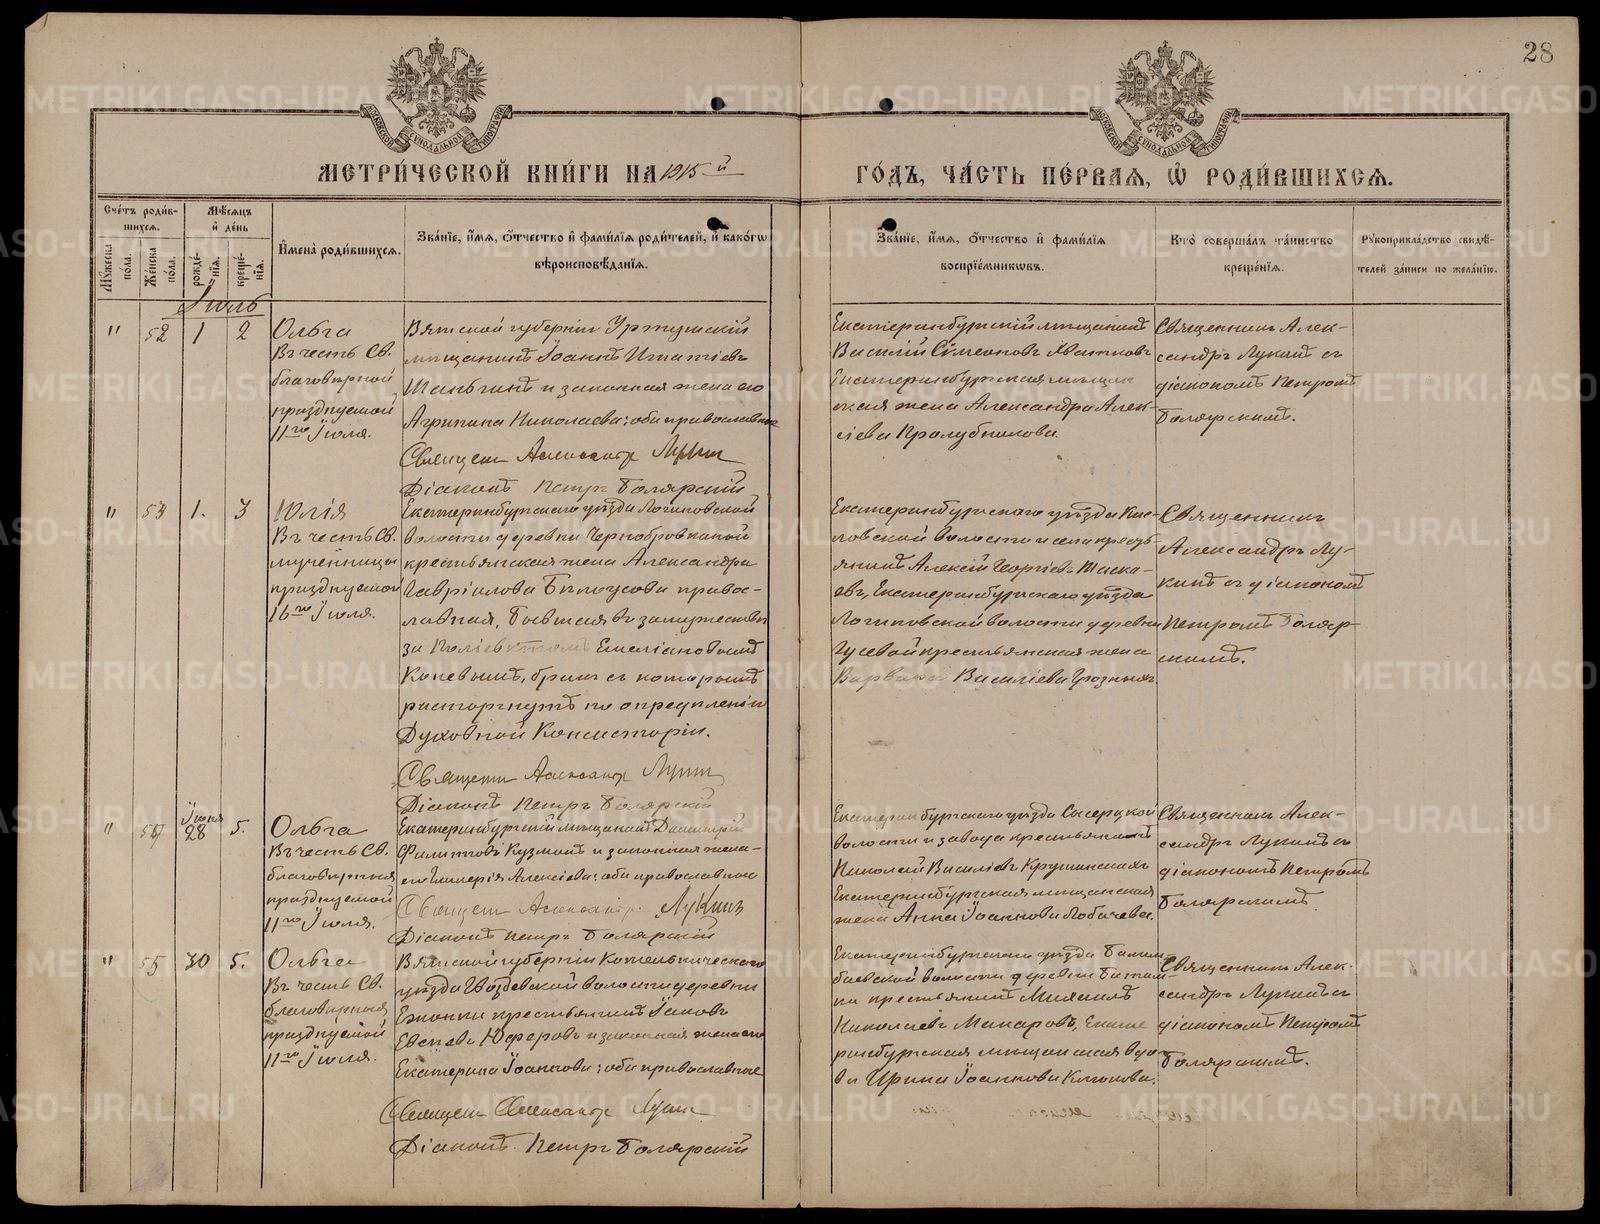 28
МОСКОВСКОЙ СУНОДАЛЬНОЙ ТИПОГРАФІИ
МОСКОВСКОЙ СУНОДАЛЬНОЙ ТИПОГРАФІИ
МЕТРИ́ЧЕСКОЙ КНИ́ГИ НА 1915й
ГО́ДЪ, ЧА́СТЬ ПЕ́РВАѦ, Ѡ҆ РОДИ́ВШИХСѦ.
Сче́тъ роди́в-
шихсѧ.
Мꙋ́жеска по́ла.
Же́нска по́ла.
Мѣ́сѧцъ
и҆ де́нь
рожде́-
нїѧ.
креще́-
нїѧ.
И҆мена̀ роди́вшихсѧ.
Зва́нїе, и҆́мѧ, ѻ҆́тчество и҆ фами́лїѧ роди́телей, и҆ како́гѡ
вѣроисповѣ́данїѧ.
Зва́нїе, и҆́мѧ, ѻ҆́тчество и҆ фами́лїѧ
воспрїе́мникѡвъ.
Кто̀ соверша́лъ та́инство
креще́нїѧ.
Рꙋкоприкла́дство свидѣ́-
телей за́писи по жела́нїю.
Іюль
" 52 1 2
Ольга
Въ честь Св.
благовѣрной
празднуемой
11го Іюля.
Вятской губерніи Уржумскій
мѣщанинъ Іоаннъ Игнатіевъ
Шаньгинъ и законная жена его
Агрипина Николаева; оба православные
Священ Александр Лукин
Діаконъ Петръ Боярскій
Екатеринбургскій мѣщанинъ
Василій Сѵмеоновъ Хватковъ
Екатеринбургская мѣщан
ская жена Александра Алек-
сіева Пролубникова.
Священникъ Алек-
сандръ Лукинъ съ
діакономъ Петромъ
Боярскимъ.
" 53 1. 3
Юлія
Въ честь Св.
мученницы
празднуемой
16го Іюля.
Екатеринбургскаго уѣзда Логиновской
волости деревни Чернобровкиной
крестьянская жена Александра
Гавріилова Бѣлоусова правос-
лавная, бывшая въ замужествѣ
за Поліевктомъ Емеліановымъ
Коневымъ, бракъ съ которымъ
расторгнутъ по опредѣленію
Духовной Консисторіи.
Священ Александр Лукин
Діаконъ Петръ Боярскій
Екатеринбургскаго уѣзда Кис-
ловской волости и села кресть
янинъ Алексій Георгіевъ
Екатеринбургскаго уѣзда
Логиновской волости деревни
Гусевой крестьянская жена
Варвара Василіева Грозныхъ.
Священникъ
Александръ Лу-
кинъ съ діакономъ
Петромъ Бояр-
скимъ.
" 54 Іюня 28 5.
Ольга
Въ честь Св.
благовѣрныя
празднуемой
11го Іюля.
Екатеринбургскій мѣщанинъ Димитрій
Филиповъ Кузминъ и законная жена-
его Алексіева; оба православные
Священ Александр Лукинъ
Діаконъ Петръ Боярскій
Екатеринбургскаго уѣзда Сысерцкой
волости и завода крестьянинъ
Николай Василіевъ
Екатеринбургская мѣщанская
жена Анна Іоаннова Лобачева.
Священникъ Алек-
сандръ Лукинъ съ
діакономъ Петромъ
Боярскимъ
" 55 30 5.
Ольга
Въ честь Св.
благовѣрныя
празднуемой
11го Іюля.
Вятской губерніи Котельническаго
уѣзда Гвоздевской волости деревни
крестьянинъ Іаковъ
Юферовъ и законная жена его
Екатерина Іоаннова; оба православные
Священ Александр Лукин
Діаконъ Петръ Боярскій
Екатеринбургскаго уѣзда
волости деревни
крестьянинъ Михаилъ
Николаевъ Макаровъ, Екате
ринбургская мѣщанская вдо-
ва Ирина Іоаннова
Священникъ Алек-
сандръ Лукинъ съ
діакономъ Петромъ
Боярскимъ.
METRIKI.GASO-URAL.RU